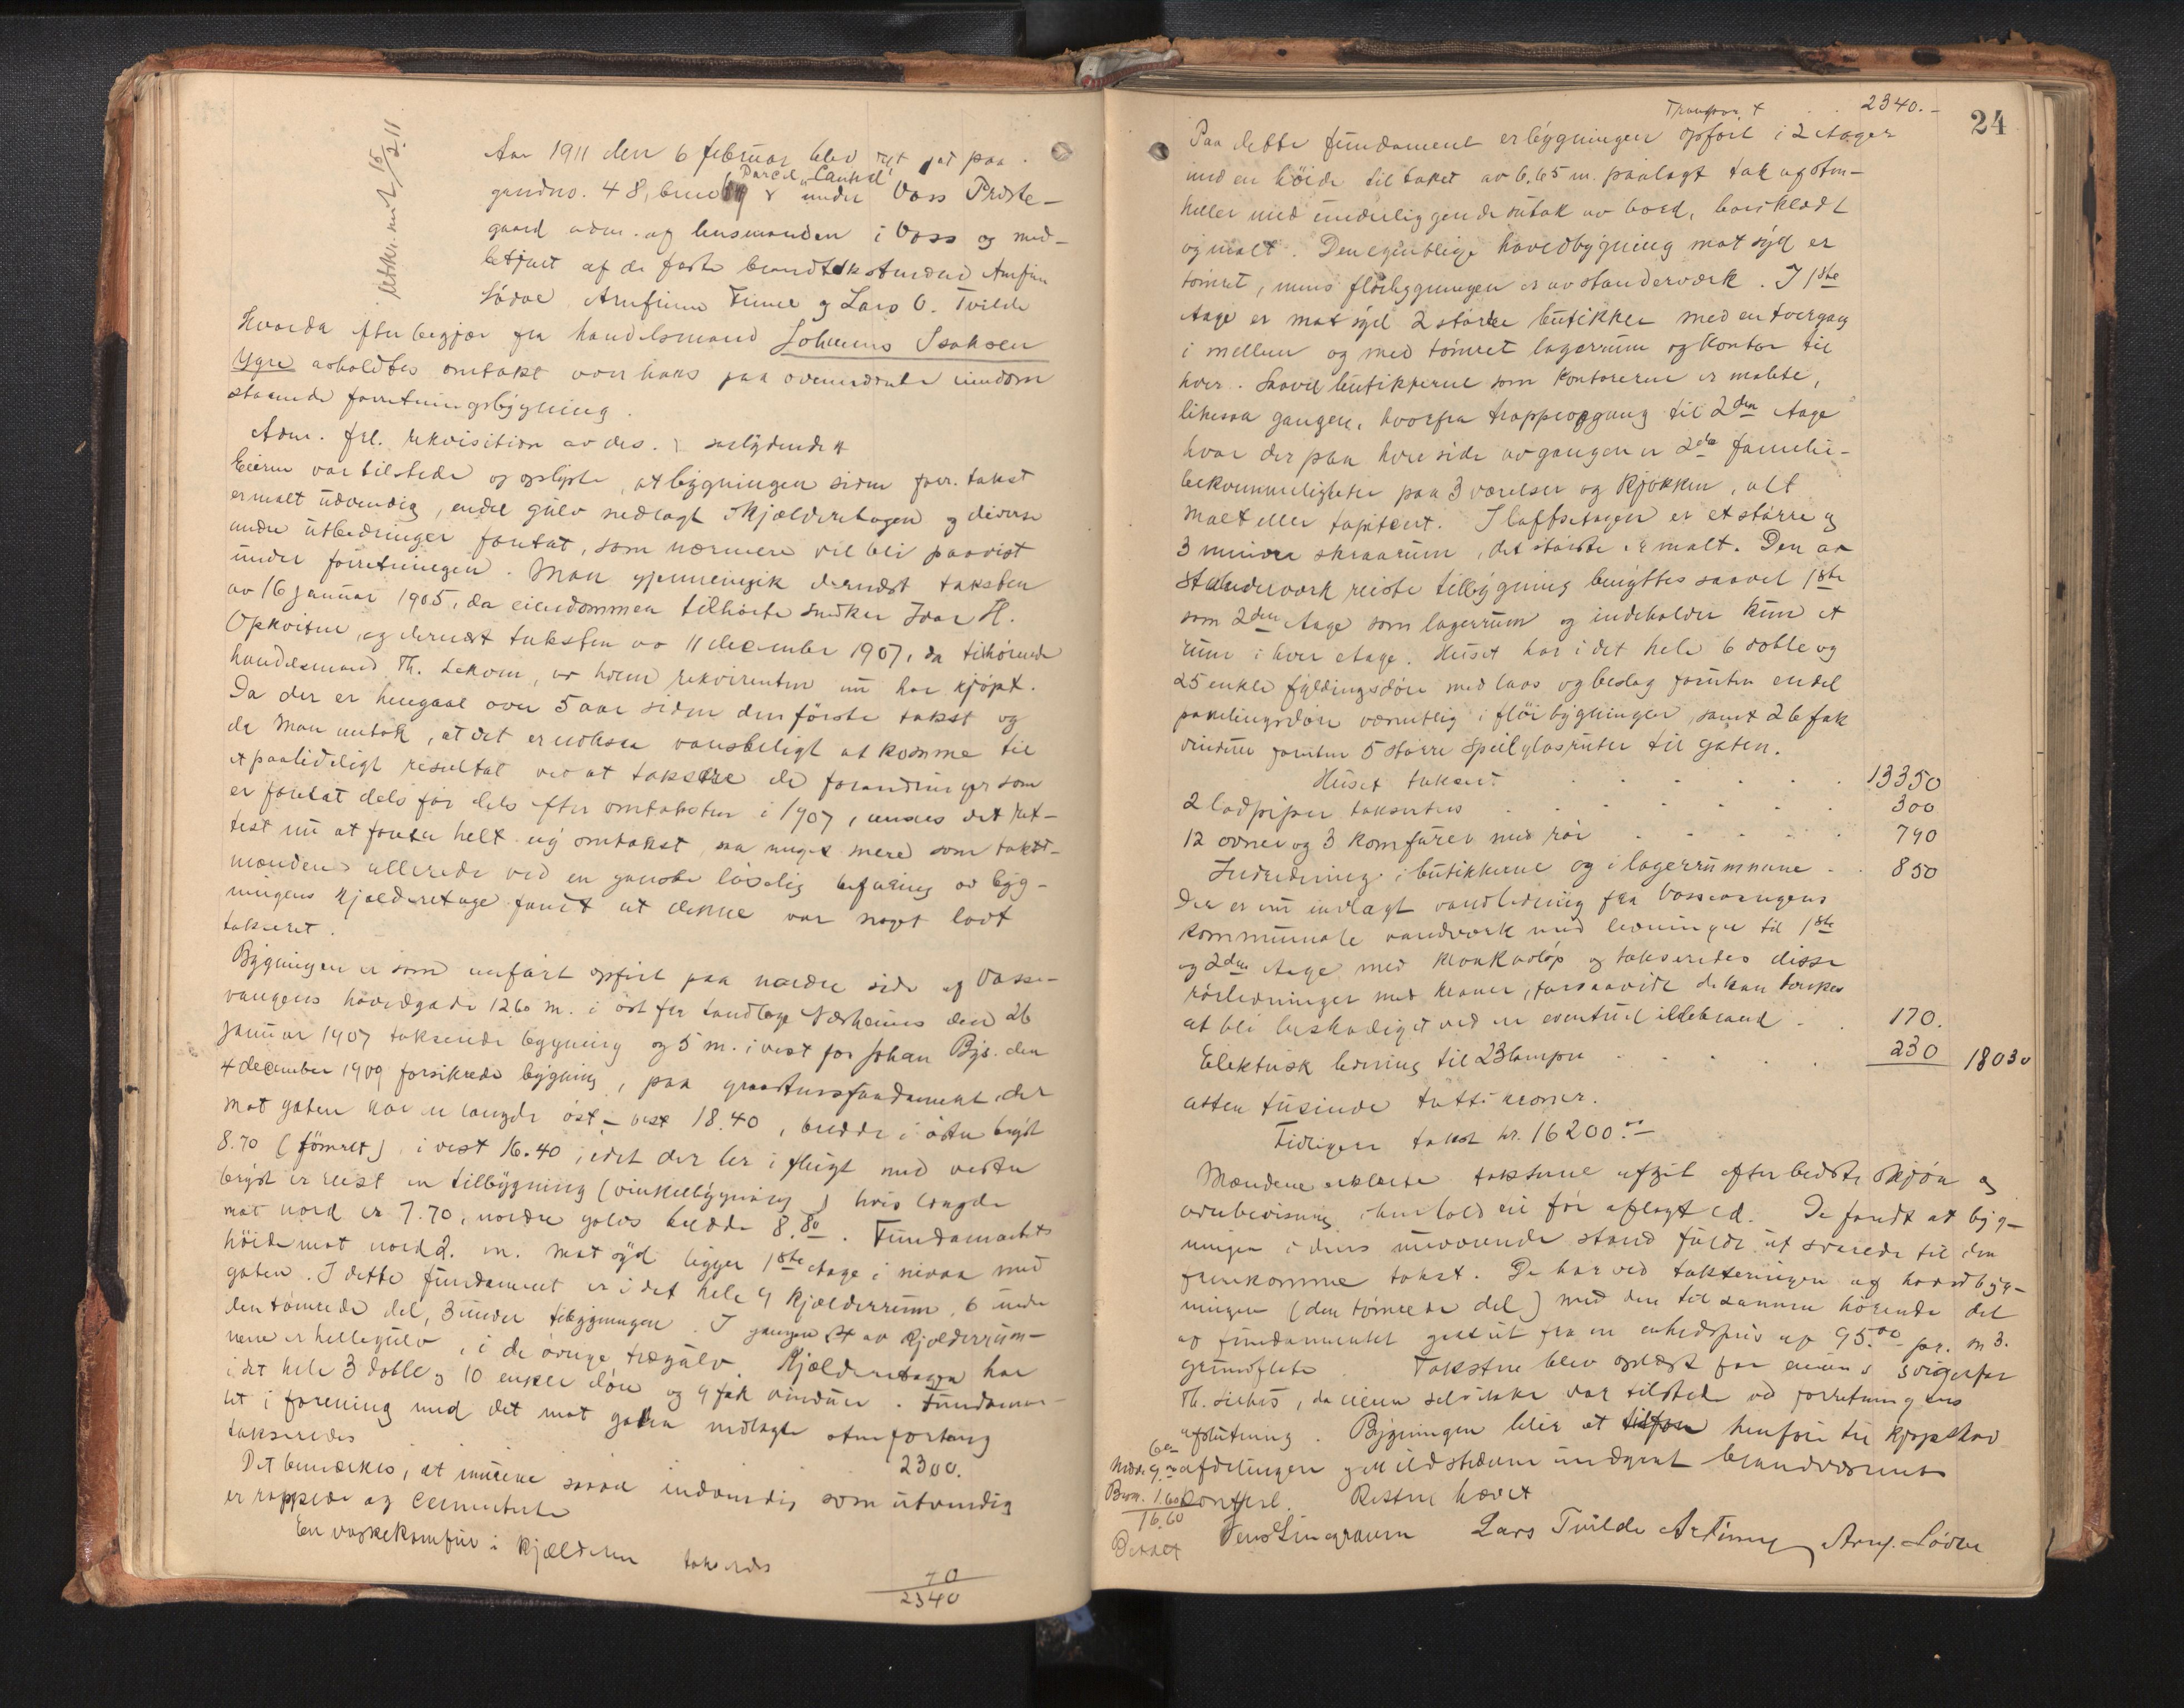 Utskr. mt 15/2.11
Aar 1911 den 6 februar blev ret sat paa
Parcel "Lauhd"
grundno. 48, bruno 19 & under Voss Præste-
gaard adm. af lensmanden i Voss og med-
betjent af de faste brandtakstmænd Arnfin
Lødve Arnfinn Finne og Lars O. Tvilde
Hvorda efter begjær fra handelsmand Johannes Isaksen
Ygre avholdtes omtakst over hans paa ovennævnte eiendom
staaende forretningsbygning.
Adm. frl. rekvisition av ds. saalydende
Eieren var tilstede og oplyste, at bygningen siden forr. takst
er malt udvendig, endel gulv nedlagt i kjælderetagen og diverse
andre utbedringer foretat, som nærmere vil bli paavist
under forretningen. Man gjennemgik dernæst taksten
av 16 januar 1905, da eiendommen tilhørte snedker Ivar H.
Opkvitne, og dernæst taksten av 11 december 1907, da tilhørende
handelsmand Th. Lekven, av hvem rekvirenten nu har kjøpt.
Da der er hengaat over 5 aar siden den første takst og
da man antok, at det er noksaa vanskeligt at komme til
et paalideligt resultat ved at taksere de forandringer som
er foretat dels før dels efter omtaksten i 1907, ansaes det ret-
test nu at foreta helt ny omtakst, saa meget mere som takst-
mændene allerede ved en ganske løselig befaring av byg-
ningens kjælderetage fandt at denne var noget lavt
takseret.
Bygningen er som anført opført paa nordre side af Vosse-
vangens hovedgade 12.60 m. i øst for landlæge Nesheims den 26
januar 1907 takserede bygning og 5 m. i vest for Johan Bjs. den
4 december 1909 forsikrede bygning, paa graastensfundament, der
mot gaten har en længde øst – vest 18.40, bredde i østre bryst
8.70 (tømret), i vest 16.40, idet der her i flugt med vestre
bryst er reist en tilbygning (vinkelbygning) hvis længde
mot nord er 7.70, nordre gavls bredde 8.80. Fundamentets
høide mot nord 2. m. Mot syd ligger 1ste etage i nivaa med
gaten. I dette fundament er i det hele 9 kjælderrum, 6 under
den tømrede del, 3 under tilbygningen. I gangen & av kjælderrum-
mene er hellegulv, i de øvrige trægulv. Kjælderetagen har
i det hele 3 doble og 10 enkle døre og 9 fak vinduer. Fundamen-
tet i forening med det mot gaten nedlagte stenfortaug
takseredes 2300.
Det bemærkes, at murene saavel indvendig som utvendig
er rappede og cementerte
En vaskekomfur i kjælderen takseres 40
2340
24
Transport 2340.-
Paa dette fundament er bygningen opført i 2 etager
med en høide til taket av 6.65 m. paalagt tak af sten-
heller med underliggende sutak av bord, bordklædt
og malt. Den egentlige hovedbygning mot syd er
tømret, mens fløibygningen er av standerværk. I 1ste
etage er mot syd 2 større butikker med en tvergang
i mellem og med tømret lagerrum og kontor til
hver. Saavel butikkerne som kontorerne er malte,
likesaa gangen, hvorfra trappeopgang til 2den etage
hvor der paa hver side av gangen er 2de familie-
bekvemmeligheter paa 3 værelser og kjøkken, alt
malt eller tapitsert. I loftsetagen er et større og
3 mindre skraarum, det største er malt. Den av
standerværk reiste tilbygning benyttes saavel 1ste
som 2den etage som lagerrum og indeholder kun et
rum i hver etage. Huset har i det hele 6 doble og
25 enkle fyldingsdøre med laas og beslag foruten endel
panelingsdøre væsentlig i fløibygningen, samt 26 fak
vinduer foruten 5 større speilglasruter til gaten.
Huset takser. 13350
2 ladpiper takseretes 300
12 ovner og 3 komfurer med rør 790
Indredning i butikkerne og i lagerrummene 850
Der er nu indlagt vandledning fra Vossevangens
kommunale vandverk med ledninger til 1ste
og 2den etage med kloakavløp og takseredes disse
rørledninger med kraner, forsaavidt de kan tænkes
at bli beskadiget ved en eventuel ildebrand 170.
Elektrisk ledning til 23 lamper 230 18030
atten tusinde tretti kroner.
Tidligere takst kr. 16200.00
Mændene erklærte taksterne afgit efter bedste skjøn og
overbevisning i henhold til før aflagt ed. De fandt at byg-
ningen i dens nuværende stand fuldt ut svarede til den
fremkomne takst. De har ved takseringen af hovedbyg-
ningen (den tømrede del) med den til samme hørende del
af fundamentet gaat ut fra en enhedspris af 95.00 pr. m 3.
grundflate. Taksten blev oplæst for eierens svigerfar
Th. , da eieren selv ikke var tilstede ved forretningens
afslutning. Bygningen blir at henføre til kjøpstad
afdelingen og er ildstedene undergivt brandvæsenets
kontrol. Retten hævet
6
Mænd. 9.
Bvm. 1.60
16.60
Betalt
Jens Lindgravn Lars Tvilde A Finne Arnf. Lødve